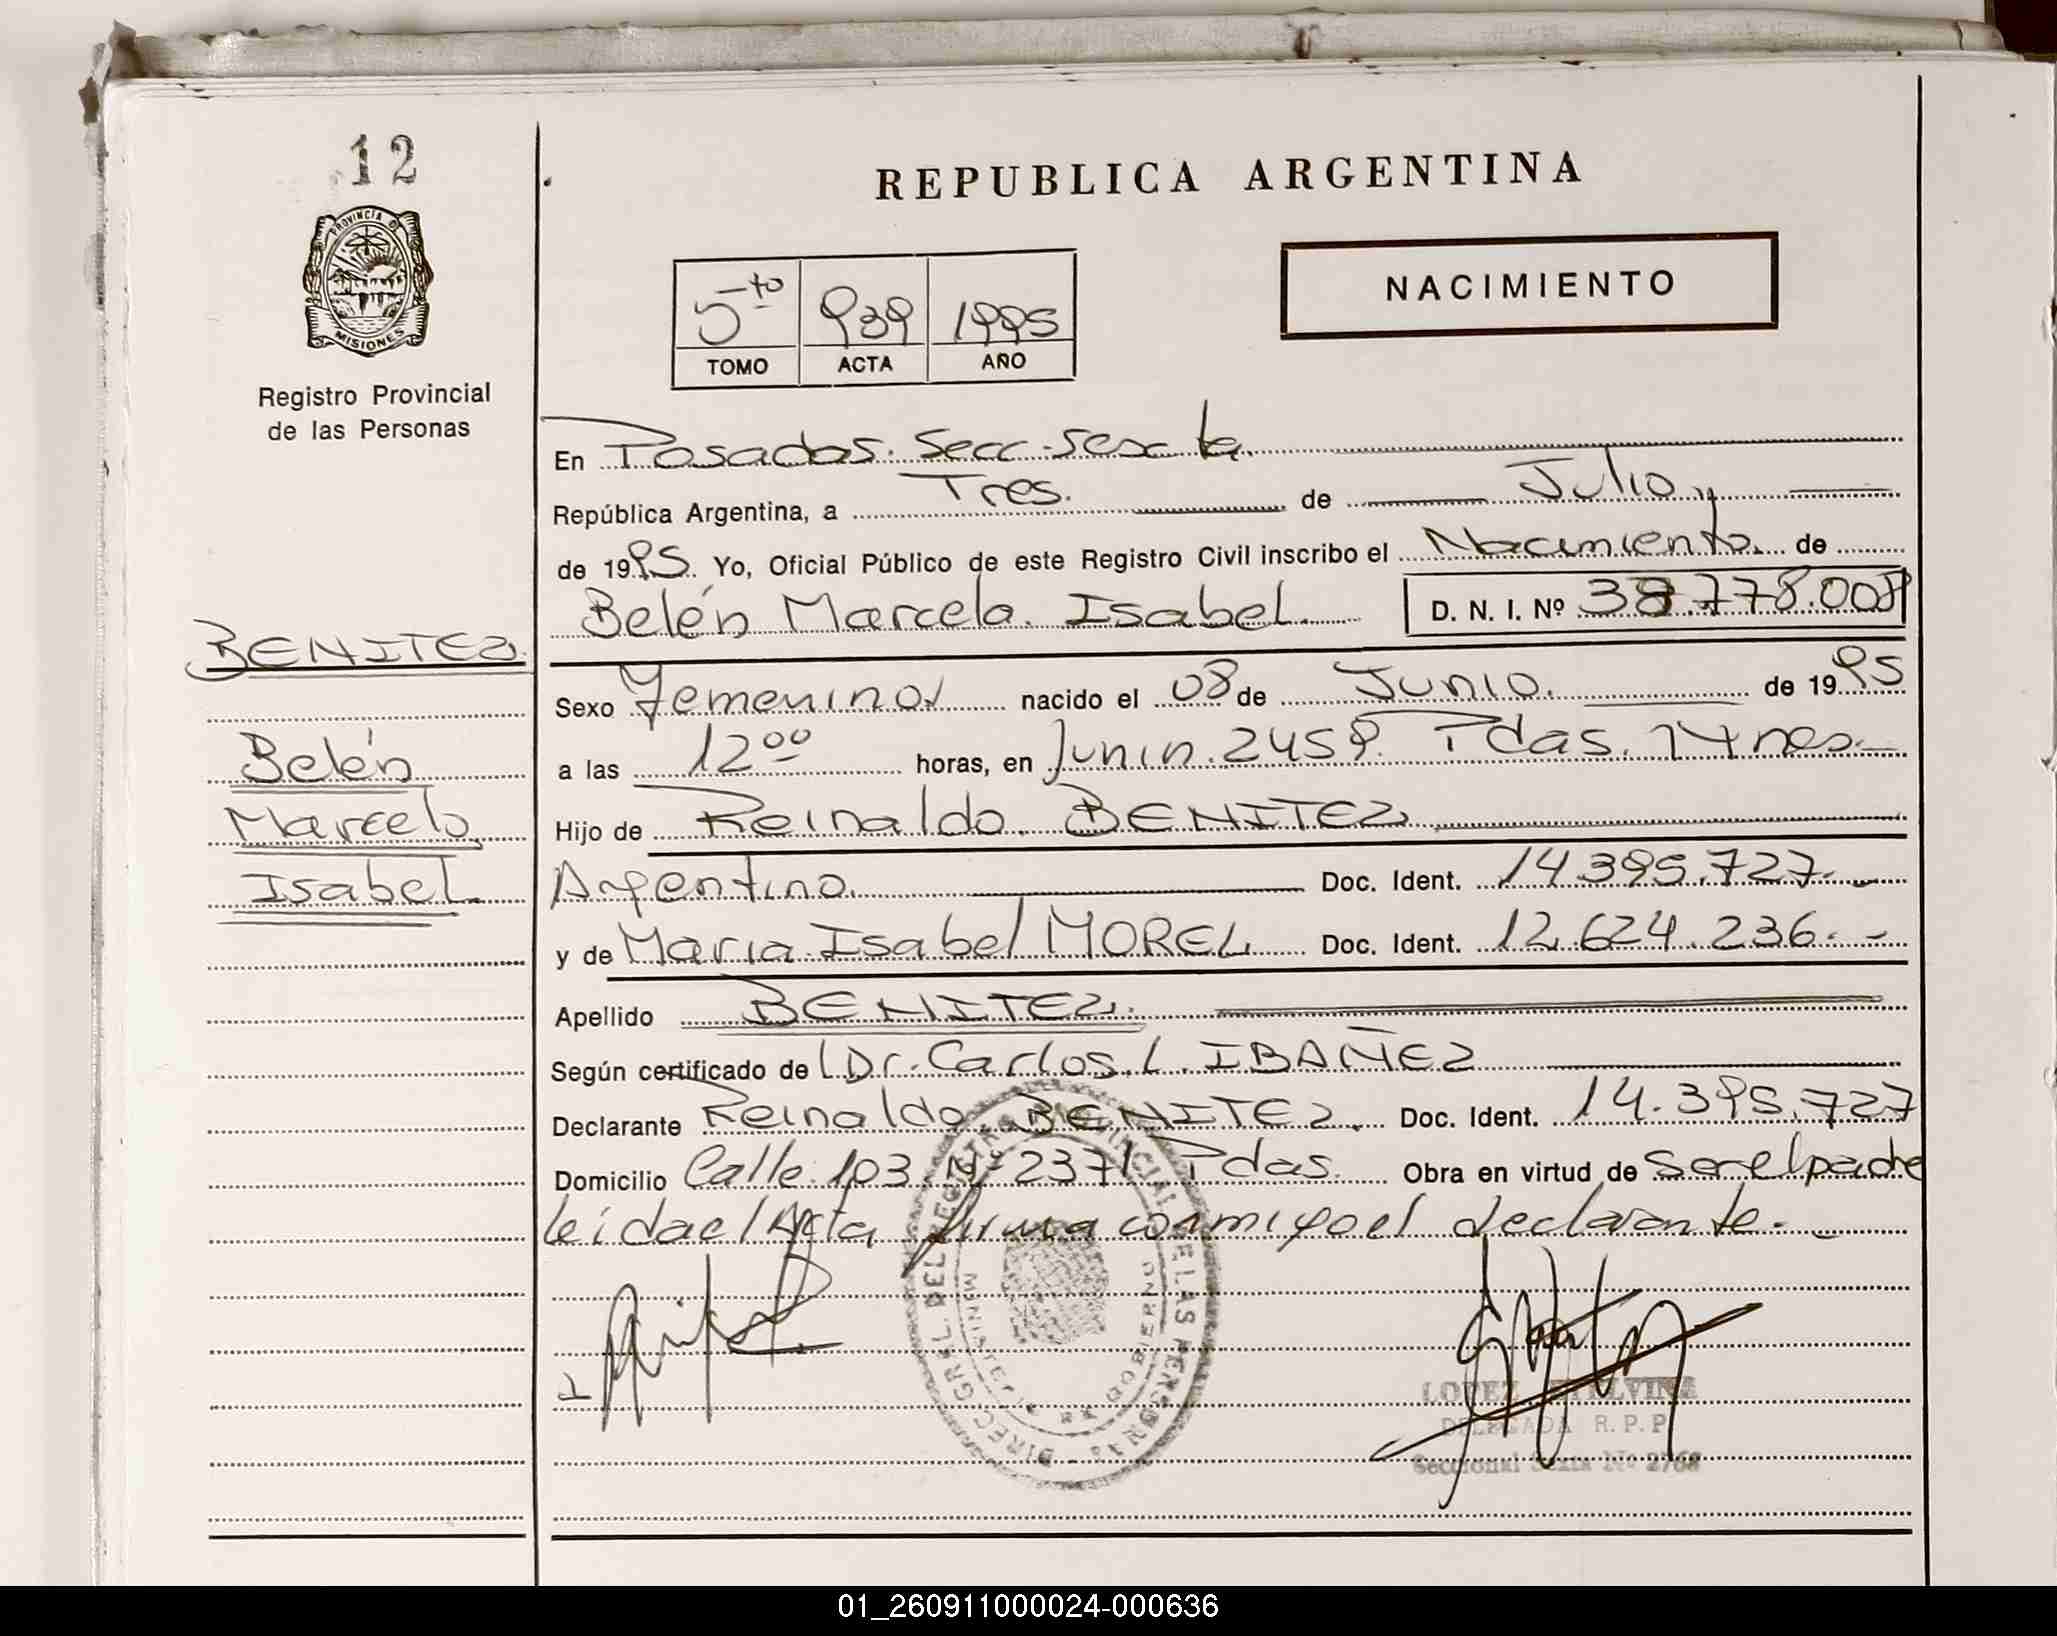 12
REPUBLICA ARGENTINA
PROVINCIA DE
MISIONES
Registro Provincial
de las Personas
NACIMIENTO
5to 939 1995
TOMO ACTA AÑO
En Posadas. Secc. Sexta
República Argentina, a Tres. de Julio,
de 1995 Yo, Oficial Público de este Registro Civil inscribo el Nacimiento de
Belén Marcela Isabel. D. N. I. Nº 38.778.008
BENITEZ
Belén
Marcela
Isabel
Sexo Femenino nacido el 08 de Junio. de 1995
a las 12 00 horas, en Junin 2459. Pdas. Mnes.
Hijo de Reinaldo BENITEZ
Argentino. Doc. Ident. 14.395.727.
y de Maria Isabel MOREL Doc. Ident. 12.624.236.
Apellido BENITEZ.
Según certificado de Dr. Carlos L. IBAÑEZ
Declarante Reinaldo BENITEZ. Doc. Ident. 14.395.727
Domicilio Calle 103 Nº 2371 Pdas. Obra en virtud de Ser el padre
leida el Acta firma conmigo el declarante.
DIREC. GRL. DEL REGISTRO PROVINCIAL DE LAS PERSONAS
MINISTERIO DE GOBIERNO
LOPEZ
DELEGADA R.P.P.
Seccional Sexta Nº 2768
01_260911000024-000636